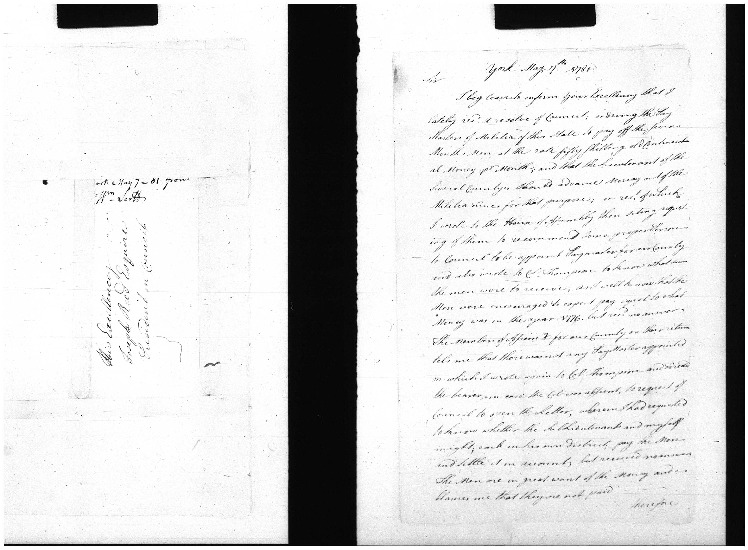 May 7 - 81 from
Wm Scott
His Excellency
Joseph Reed Esquire
President in Council
York May 7th 1781
Sir
I beg leave to inform your Excellency that I
lately recd a resolve of Council, ordering the Pay
Masters of Militia of this State to pay off the seven
Months Men at the rate fifty Shillings of Continent
al Money pr Month, and that the Lieutenant of the
several Countys should advance Money out of the
Militia fines for that purpose, on rect of which
I wrote to the House of Assembly then siting request
ing of them to recommend some proper Person
to Council to be appointed Paymaster for our County
and also wrote to Col. Thompson to know what
the men were to receive, as I well know that the
Men were encouraged to expect pay equal to what
Money was in the year 1776. but recd no answer
The Members of Assembly for our County on their return
tels me that there was not any Pay Master appointed
on which I wrote again to Col. Thompson and
the bearer, in case the Col. was absent, to request of
Council to open the Letter, wherein I had requested
to know whether the Sub Lieutenants and myself
might, each in his own district, pay the Men
and settle it on account, but received no answer
The Men are in great want of the Money and
blames me that they are not paid
therefore